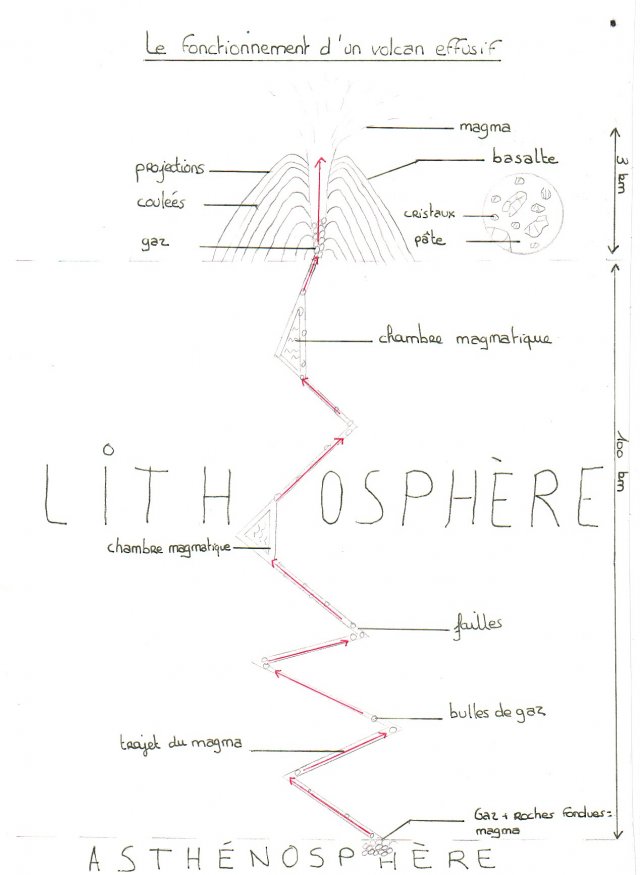 Le fonctionnement d'un volcan effusif
magma
projections
basalte
3 km
coulées
cristaux
gaz
pâte
chambre magmatique
100 km
LITHOSPHÈRE
chambre magmatique
failles
bulles de gaz
trajet du magma
Gaz + Roches fondues =
magma
ASTHÉNOSPHÈRE